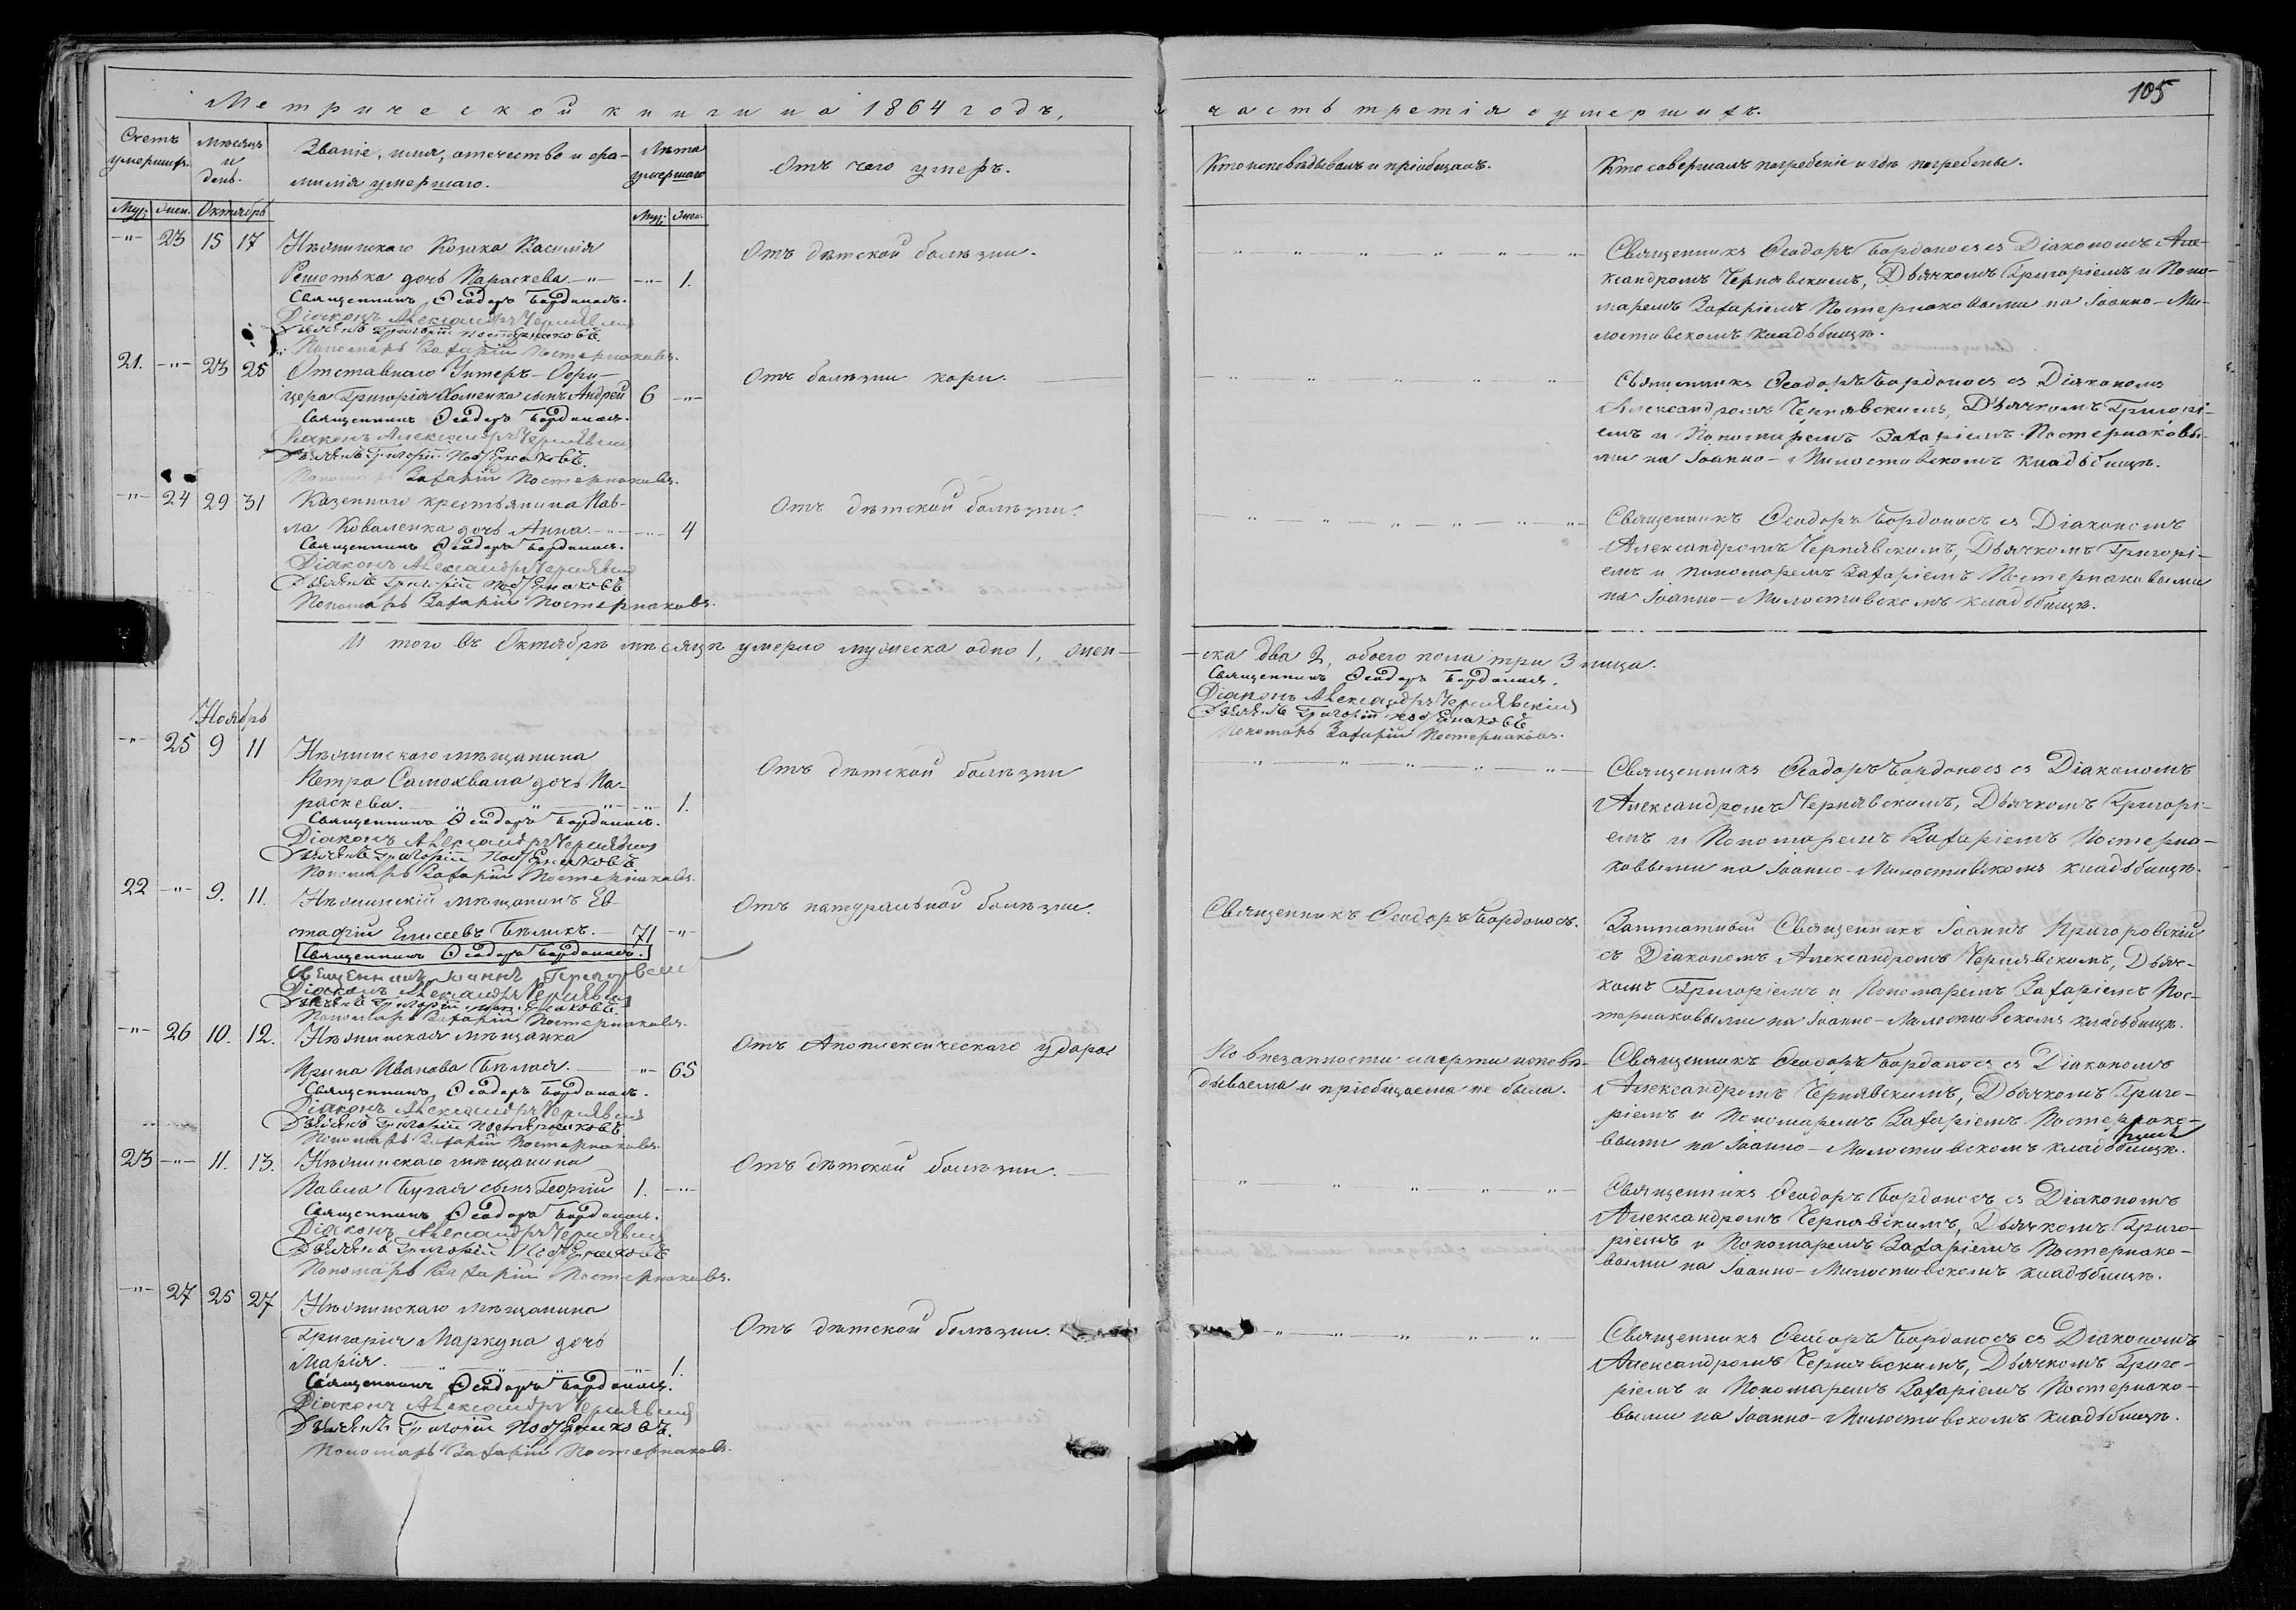 105
Метрической книги на 1864 годъ,
часть третія о умершихъ.
Счетъ умершихъ.
Мѣсяцъ и день.
Званіе, имя, отечество и фа-
милія умершаго.
Лѣта умершаго
Отъ чего умеръ.
Кто исповѣдывалъ и пріобщалъ.
Кто совершалъ погребеніе и гдѣ погребены.
Муж: Жен. Октябрь
Муж: Жен.
-"- 23 15 17 Нѣжинскаго Козака Василія
Решотька дочь Параскева. -"- -"- 1.
Священникъ Ѳеодоръ Бордоносъ.
Діаконъ Александръ Чернявскій
Дьячекъ Григорій Постернаковъ
Пономарь Захарій Постернаковъ.
Отъ дѣтской болѣзни.
Священникъ Ѳеодоръ Бордоносъ съ Діакономъ Але-
ксандромъ Чернявскимъ, Дьячкомъ Григоріемъ и Поно-
маремъ Захаріемъ Постернаковыми на Іоанно-Ми-
лостивскомъ кладбищѣ.
21. -"- 23 25 Отставнаго Унтеръ-Офи-
цера Григорія Хоменка сынъ Андрей 6 -"-
Священникъ Ѳеодоръ Бордоносъ.
Діаконъ Александръ Чернявскій
Дьячекъ Григорій Постернаковъ.
Пономарь Захарій Постернаковъ.
Отъ болѣзни кори.
Священникъ Ѳеодоръ Бордоносъ съ Діакономъ
Александромъ Чернявскимъ, Дьячкомъ Григорі-
емъ и Пономаремъ Захаріемъ Постернаковы-
ми на Іоанно-Милостивскомъ кладбищѣ.
-"- 24 29 31 Казеннаго крестьянина Пав-
ла Коваленка дочь Анна. -"- -"- 4
Священникъ Ѳеодоръ Бордоносъ.
Діаконъ Александръ Чернявскій
Дьячекъ Григорій Постернаковъ
Пономарь Захарій Постернаковъ.
Отъ дѣтской болѣзни.
Священникъ Ѳеодоръ Бордоносъ съ Діакономъ
Александромъ Чернявскимъ, Дьячкомъ Григорі-
емъ и пономаремъ Захаріемъ Постернаковыми
на Іоанно-Милостивскомъ кладбищѣ.
И того въ Октябрѣ мѣсяцѣ умерло мужеска одно 1, жен-
ска два 2, обоего пола три 3 лица.
Священникъ Ѳеодоръ Бордоносъ.
Діаконъ Александръ Чернявскій
Дьячекъ Григорій Постернаковъ
Пономарь Захарій Постернаковъ.
Ноябрь
-"- 25 9 11 Нѣжинскаго мѣщанина
Петра Самохвала дочь Па-
раскева. -"- 1.
Священникъ Ѳеодоръ Бордоносъ.
Діаконъ Александръ Чернявскій
Дьячекъ Григорій Постернаковъ
Пономарь Захарій Постернаковъ.
Отъ дѣтской болѣзни
Священникъ Ѳеодоръ Бордоносъ съ Діакономъ
Александромъ Чернявскимъ, Дьячкомъ Григорі-
емъ и Пономаремъ Захаріемъ Постерна-
ковыми на Іоанно-Милостивскомъ кладбищѣ.
22 -"- 9. 11. Нѣжинскій мѣщанинъ Ев-
стафій Елисеевъ Бѣликъ. 71 -"-
Священникъ Ѳеодоръ Бордоносъ.
Священникъ Іоаннъ Пригоровскій
Діаконъ Александръ Чернявскій
Дьячекъ Григорій Постернаковъ.
Пономарь Захарій Постернаковъ.
Отъ натуральной болѣзни.
Священникъ Ѳеодоръ Бордоносъ.
Заштатный Священникъ Іоаннъ Пригоровскій
съ Діакономъ Александромъ Чернявскимъ, Дьяч-
комъ Григоріемъ и Пономаремъ Захаріемъ Пос-
тернаковыми на Іоанно-Милостивскомъ кладбищѣ.
-"- 26 10. 12. Нѣжинская мѣщанка
Ирина Иванова Бѣлая. -"- 65
Священникъ Ѳеодоръ Бордоносъ.
Діаконъ Александръ Чернявскій
Дьячекъ Григорій Постернаковъ
Пономарь Захарій Постернаковъ.
Отъ Апоплексическаго удара.
По внезапности смерти исповѣ-
дываема и пріобщаема не была.
Священникъ Ѳеодоръ Бордоносъ съ Діакономъ
Александромъ Чернявскимъ, Дьячкомъ Григо-
ріемъ и Пономаремъ Захаріемъ Постернако-
выми на Іоанно-Милостивскомъ кладбищѣ.
23 -"- 11. 13. Нѣжинскаго мѣщанина
Павла Бугая сынъ Георгій 1. -"-
Священникъ Ѳеодоръ Бордоносъ.
Діаконъ Александръ Чернявскій
Дьячекъ Григорій Постернаковъ
Пономарь Захарій Постернаковъ.
Отъ дѣтской болѣзни.
Священникъ Ѳеодоръ Бордоносъ съ Діакономъ
Александромъ Чернявскимъ, Дьячкомъ Григо-
ріемъ и Пономаремъ Захаріемъ Постернако-
выми на Іоанно-Милостивскомъ кладбищѣ.
-"- 27 25 27 Нѣжинскаго мѣщанина
Григорія Маркуна дочь
Марія. -"- 1.
Священникъ Ѳеодоръ Бордоносъ.
Діаконъ Александръ Чернявскій
Дьячекъ Григорій Постернаковъ.
Пономарь Захарій Постернаковъ.
Отъ дѣтской болѣзни.
Священникъ Ѳеодоръ Бордоносъ съ Діакономъ
Александромъ Чернявскимъ, Дьячкомъ Григо-
ріемъ и Пономаремъ Захаріемъ Постернако-
выми на Іоанно-Милостивскомъ кладбищѣ.